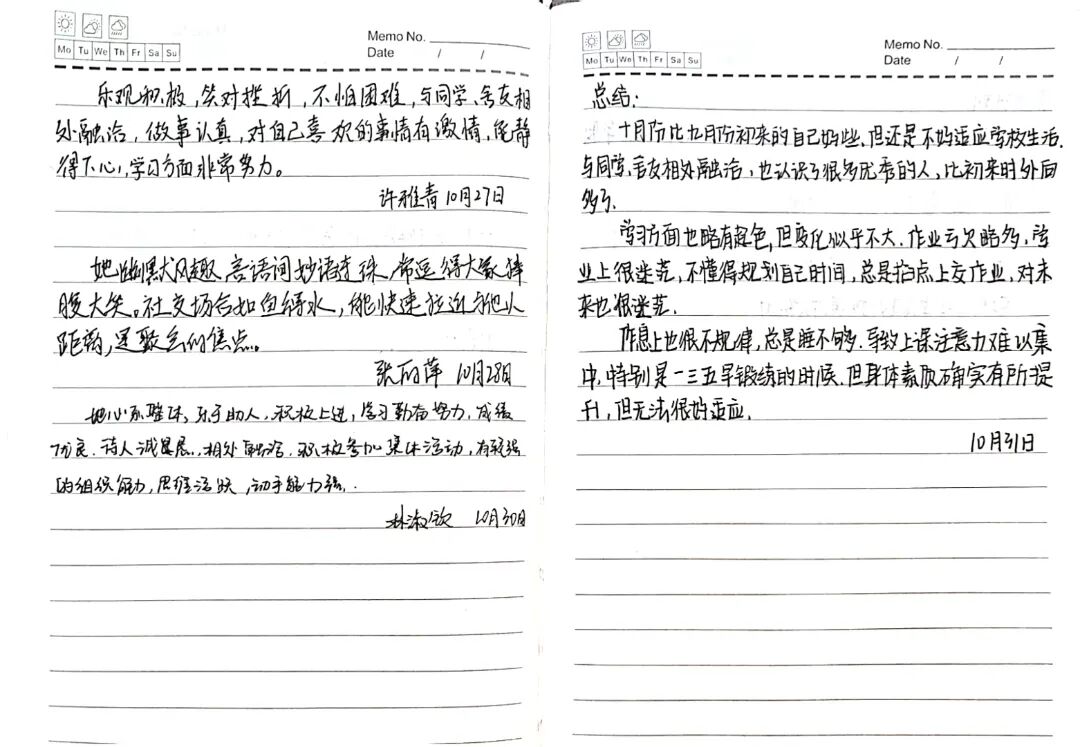 Memo No.
Date / /
Mo Tu We Th Fr Sa Su
乐观积极,笑对挫折,不怕困难,与同学、舍友相
处融洽,做事认真,对自己喜欢的事情有激情,能静
得下心,学习方面非常努力。
许雅青 10月27日
她幽默风趣,言语间妙语连珠,常逗得大家捧
腹大笑。社交场合如鱼得水,能快速拉近与他人
距离,是聚会的焦点。
张丽萍 10月28日
她心系集体,乐于助人,积极上进,学习勤奋努力,成绩
优良.待人诚恳,相处融洽.积极参加集体活动,有较强
的组织能力,思维活跃,动手能力强.
林淑钦 10月30日
Memo No.
Date / /
Mo Tu We Th Fr Sa Su
总结:
十月份比九月份初来的自己好些,但还是不妈适应学校生活.
与同学,舍友相处融洽,也认识了很多优秀的人,比初来时外向
多了.
学习方面也略有起色,但变化似乎不大.作业亏欠略多,学
业上很迷茫,不懂得规划自己时间,总是掐点上交作业,对未
来也很迷茫.
作息上也很不规律,总是睡不够.导致上课注意力难以集
中,特别是一三五早锻练的时候.但身体素质确实有所提
升,但无法很好适应.
10月31日